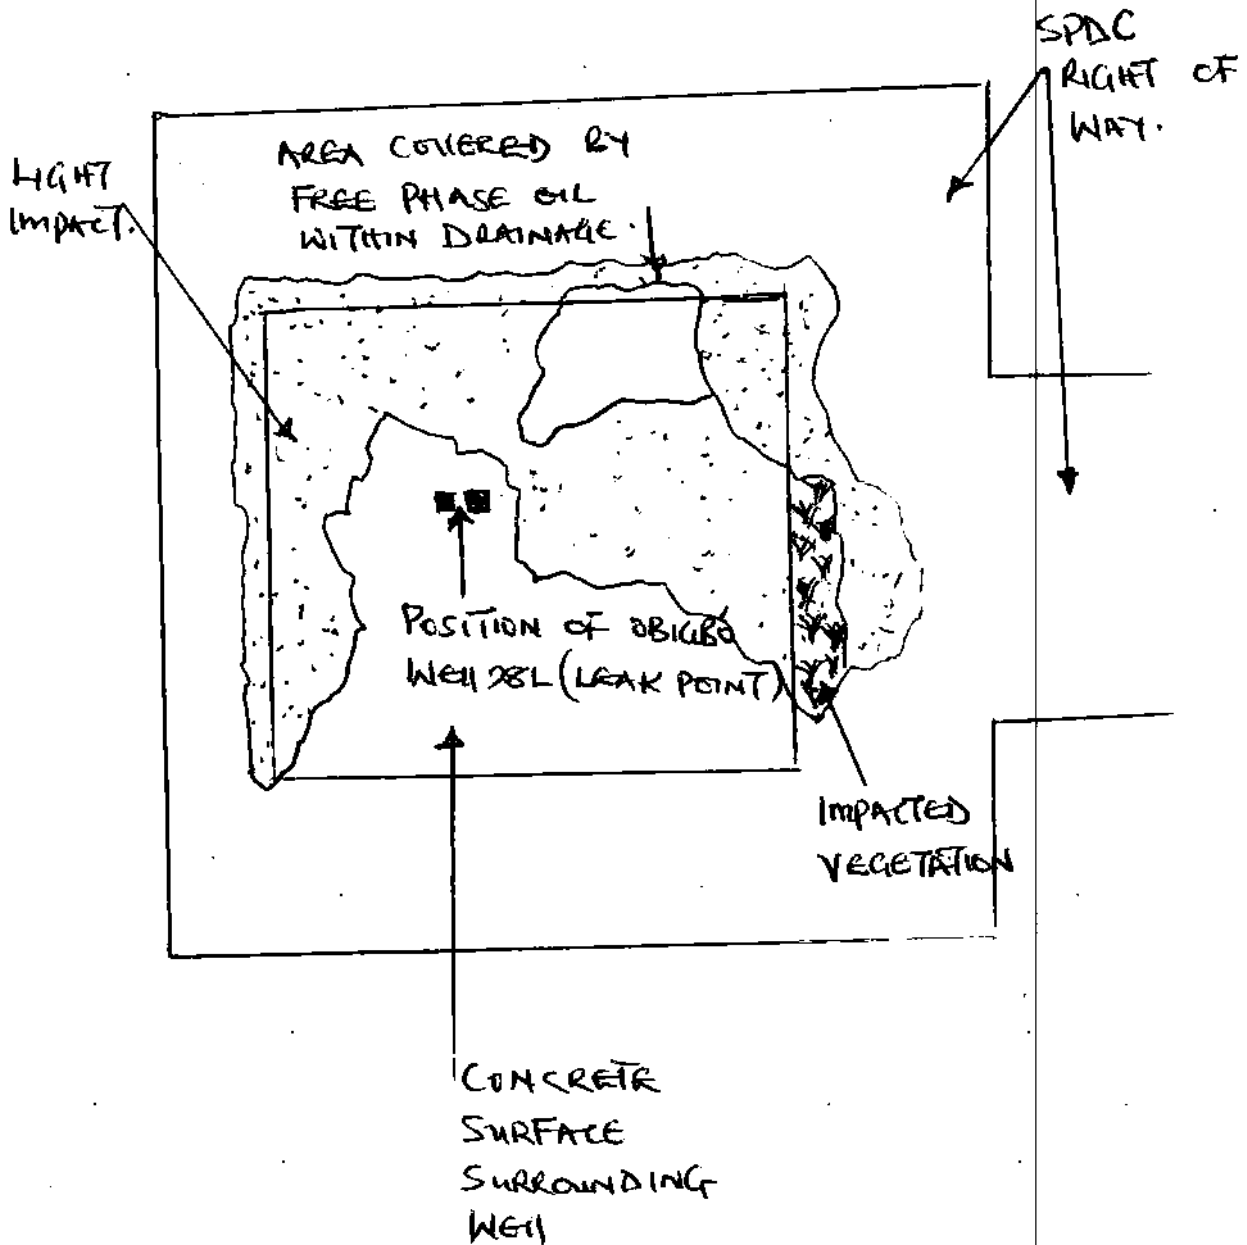 SPDC
RIGHT OF
WAY.
AREA COVERED BY
FREE PHASE OIL
WITHIN DRAINAGE.
LIGHT
IMPACT.
POSITION OF OBIGBO
WELL 28L (LEAK POINT)
IMPACTED
VEGETATION
CONCRETE
SURFACE
SURROUNDING
WELL